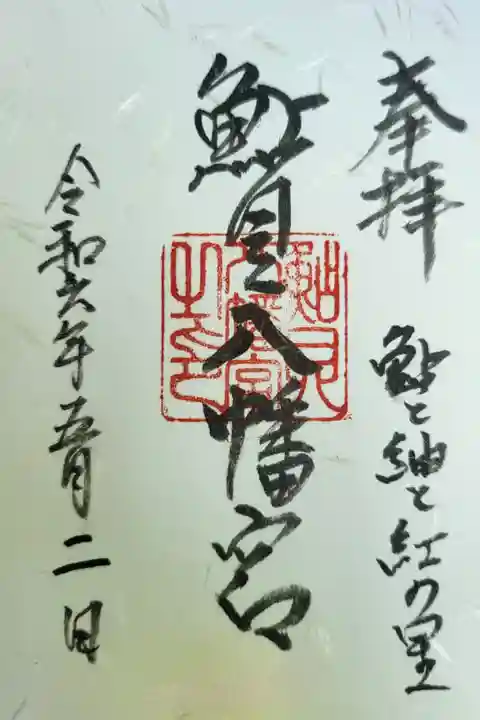 奉拝
鮎と紬と紅の里
鮎貝八幡宮
令和六年五月二日